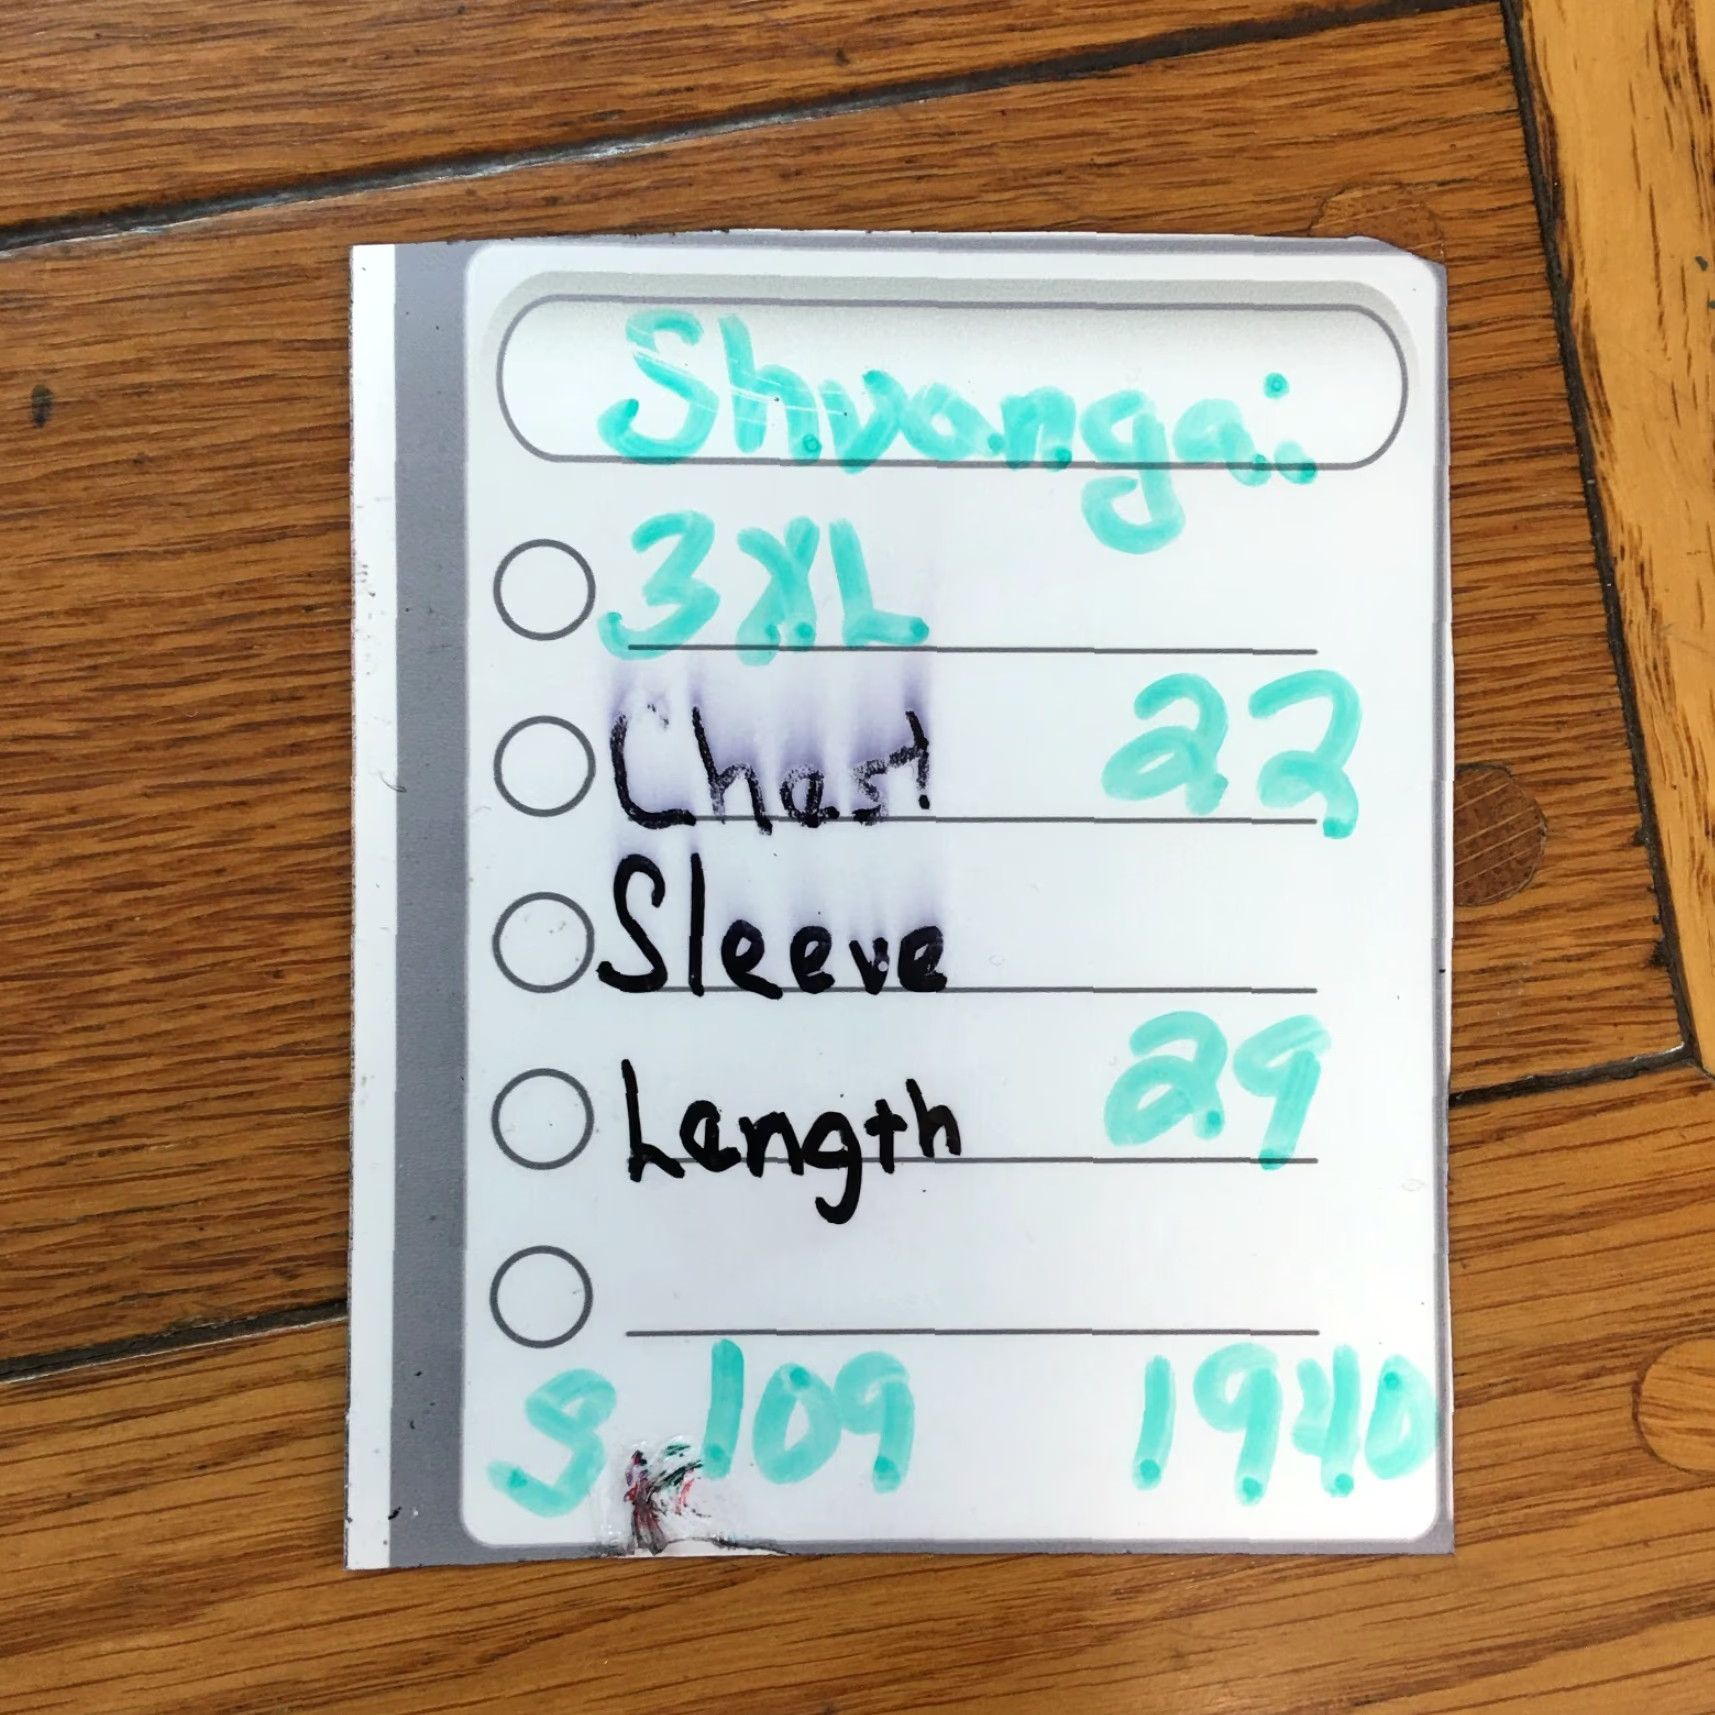 Shvangai
3XL
Chest 22
Sleeve
Length 29
S 109 1940